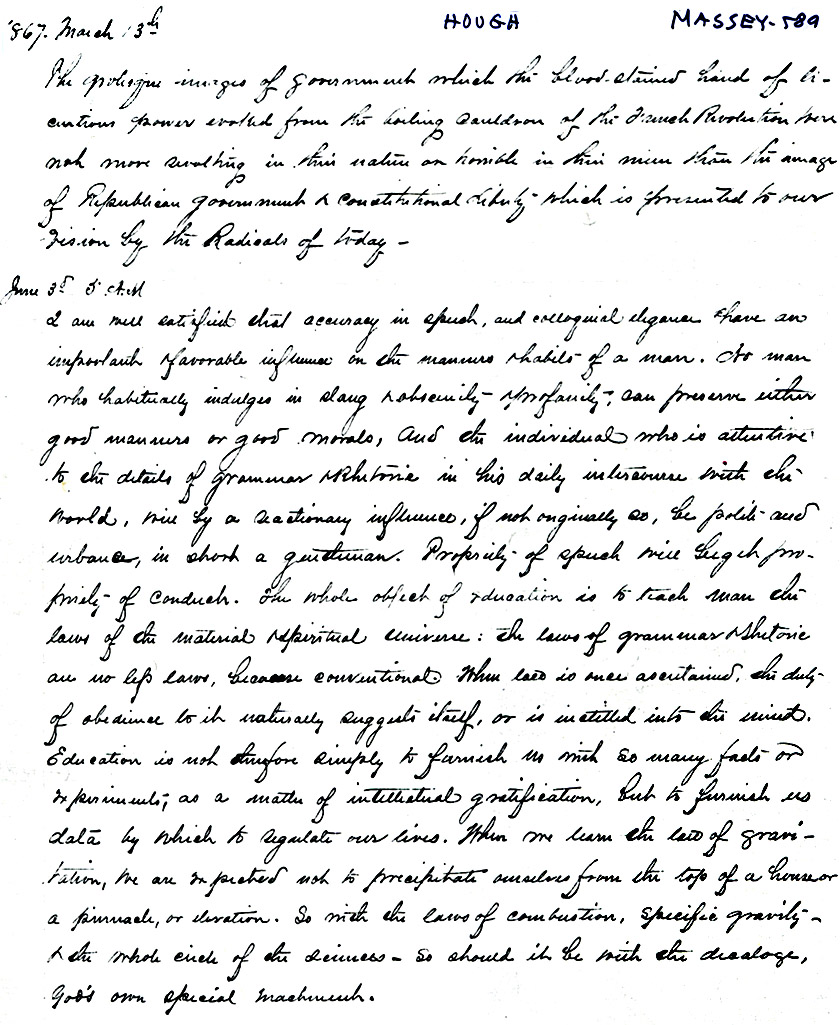 '867. March 13th HOUGH MASSEY-589
The grotesque images of government which the blood-stained hand of li-
centious power evoked from the boiling cauldron of the French Revolution were
not more revolting in their nature or horrible in their mien than the image
of Republican government & constitutional Liberty which is presented to our
vision by the Radicals of today -
June 3d 5 A.M
I am well satisfied that accuracy in speech, and colloquial elegance have an
important & favorable influence on the manners & habits of a man. No man
who habitually indulges in slang & obscenity & profanity, can preserve either
good manners or good morals, And the individual who is attentive
to the details of grammar & Rhetoric in his daily intercourse with the
world, will by a reactionary influence, if not originally so, be polite and
urbane, in short a gentleman. Propriety of speech will beget pro-
priety of conduct. The whole object of education is to teach man the
laws of the material & spiritual universe: the laws of grammar & rhetoric
are no less laws, because conventional. When law is once ascertained, the duty
of obedience to it naturally suggests itself, or is instilled into the mind.
Education is not therefore simply to furnish us with so many facts or
experiments, as a matter of intellectual gratification, but to furnish us
data by which to regulate our lives. When we learn the law of gravi-
tation, we are expected not to precipitate ourselves from the top of a house or
a pinnacle, or elevation. So with the laws of combustion, specific gravity -
& the whole circle of the sciences - So should it be with the decaloge,
God's own special